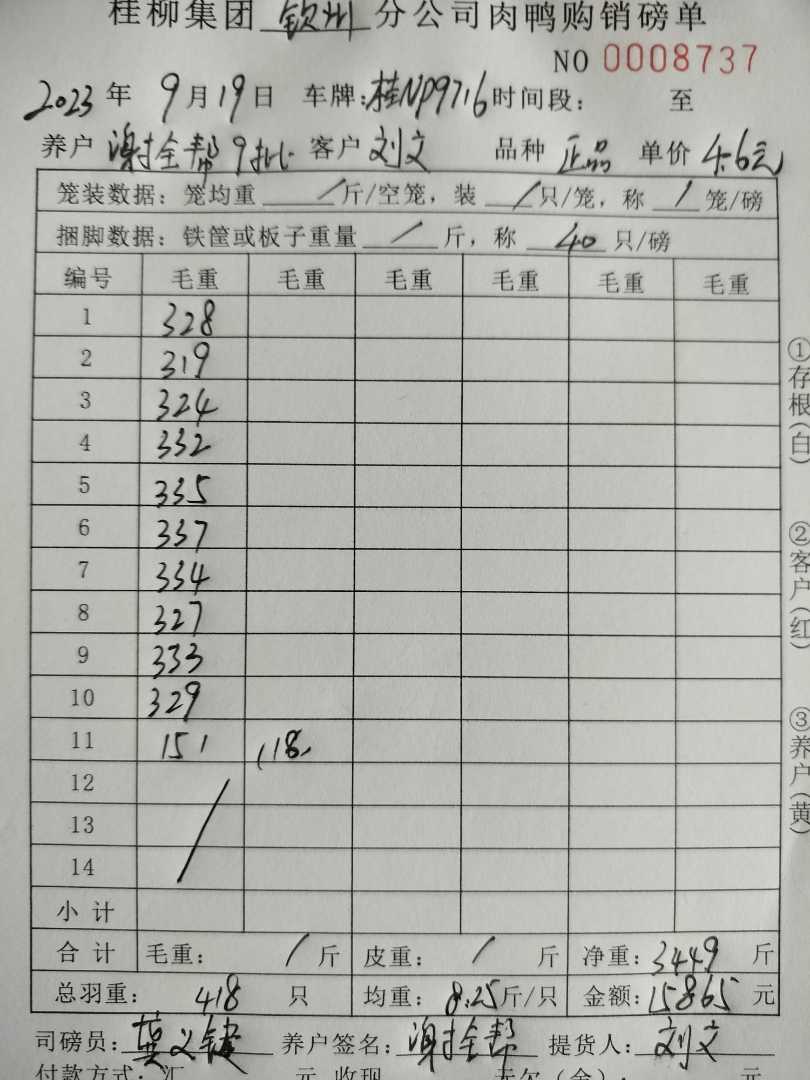 桂柳集团 钦州 分公司肉鸭购销磅单
NO 0008737
2023 年 9 月 19 日 车牌:桂NP9716 时间段: 至
养户 谢全帮 9批 客户 刘文 品种 正品 单价 4.6元
笼装数据: 笼均重 / 斤/空笼, 装 / 只/笼, 称 / 笼/磅
捆脚数据: 铁筐或板子重量 / 斤, 称 40 只/磅
编号 毛重 毛重 毛重 毛重 毛重 毛重
1 328
2 319
3 324
4 332
5 335
6 337
7 334
8 327
9 333
10 329
11 151 (18)
12
13
14
小计
合计 毛重: / 斤 皮重: / 斤 净重: 3449 斤
总羽重: 418 只 均重: 8.25 斤/只 金额: 15865 元
司磅员: 养户签名: 谢全帮 提货人: 刘文
付款方式: 汇 元 收现 元欠(余): 元
①存根(白) ②客户(红) ③养户(黄)